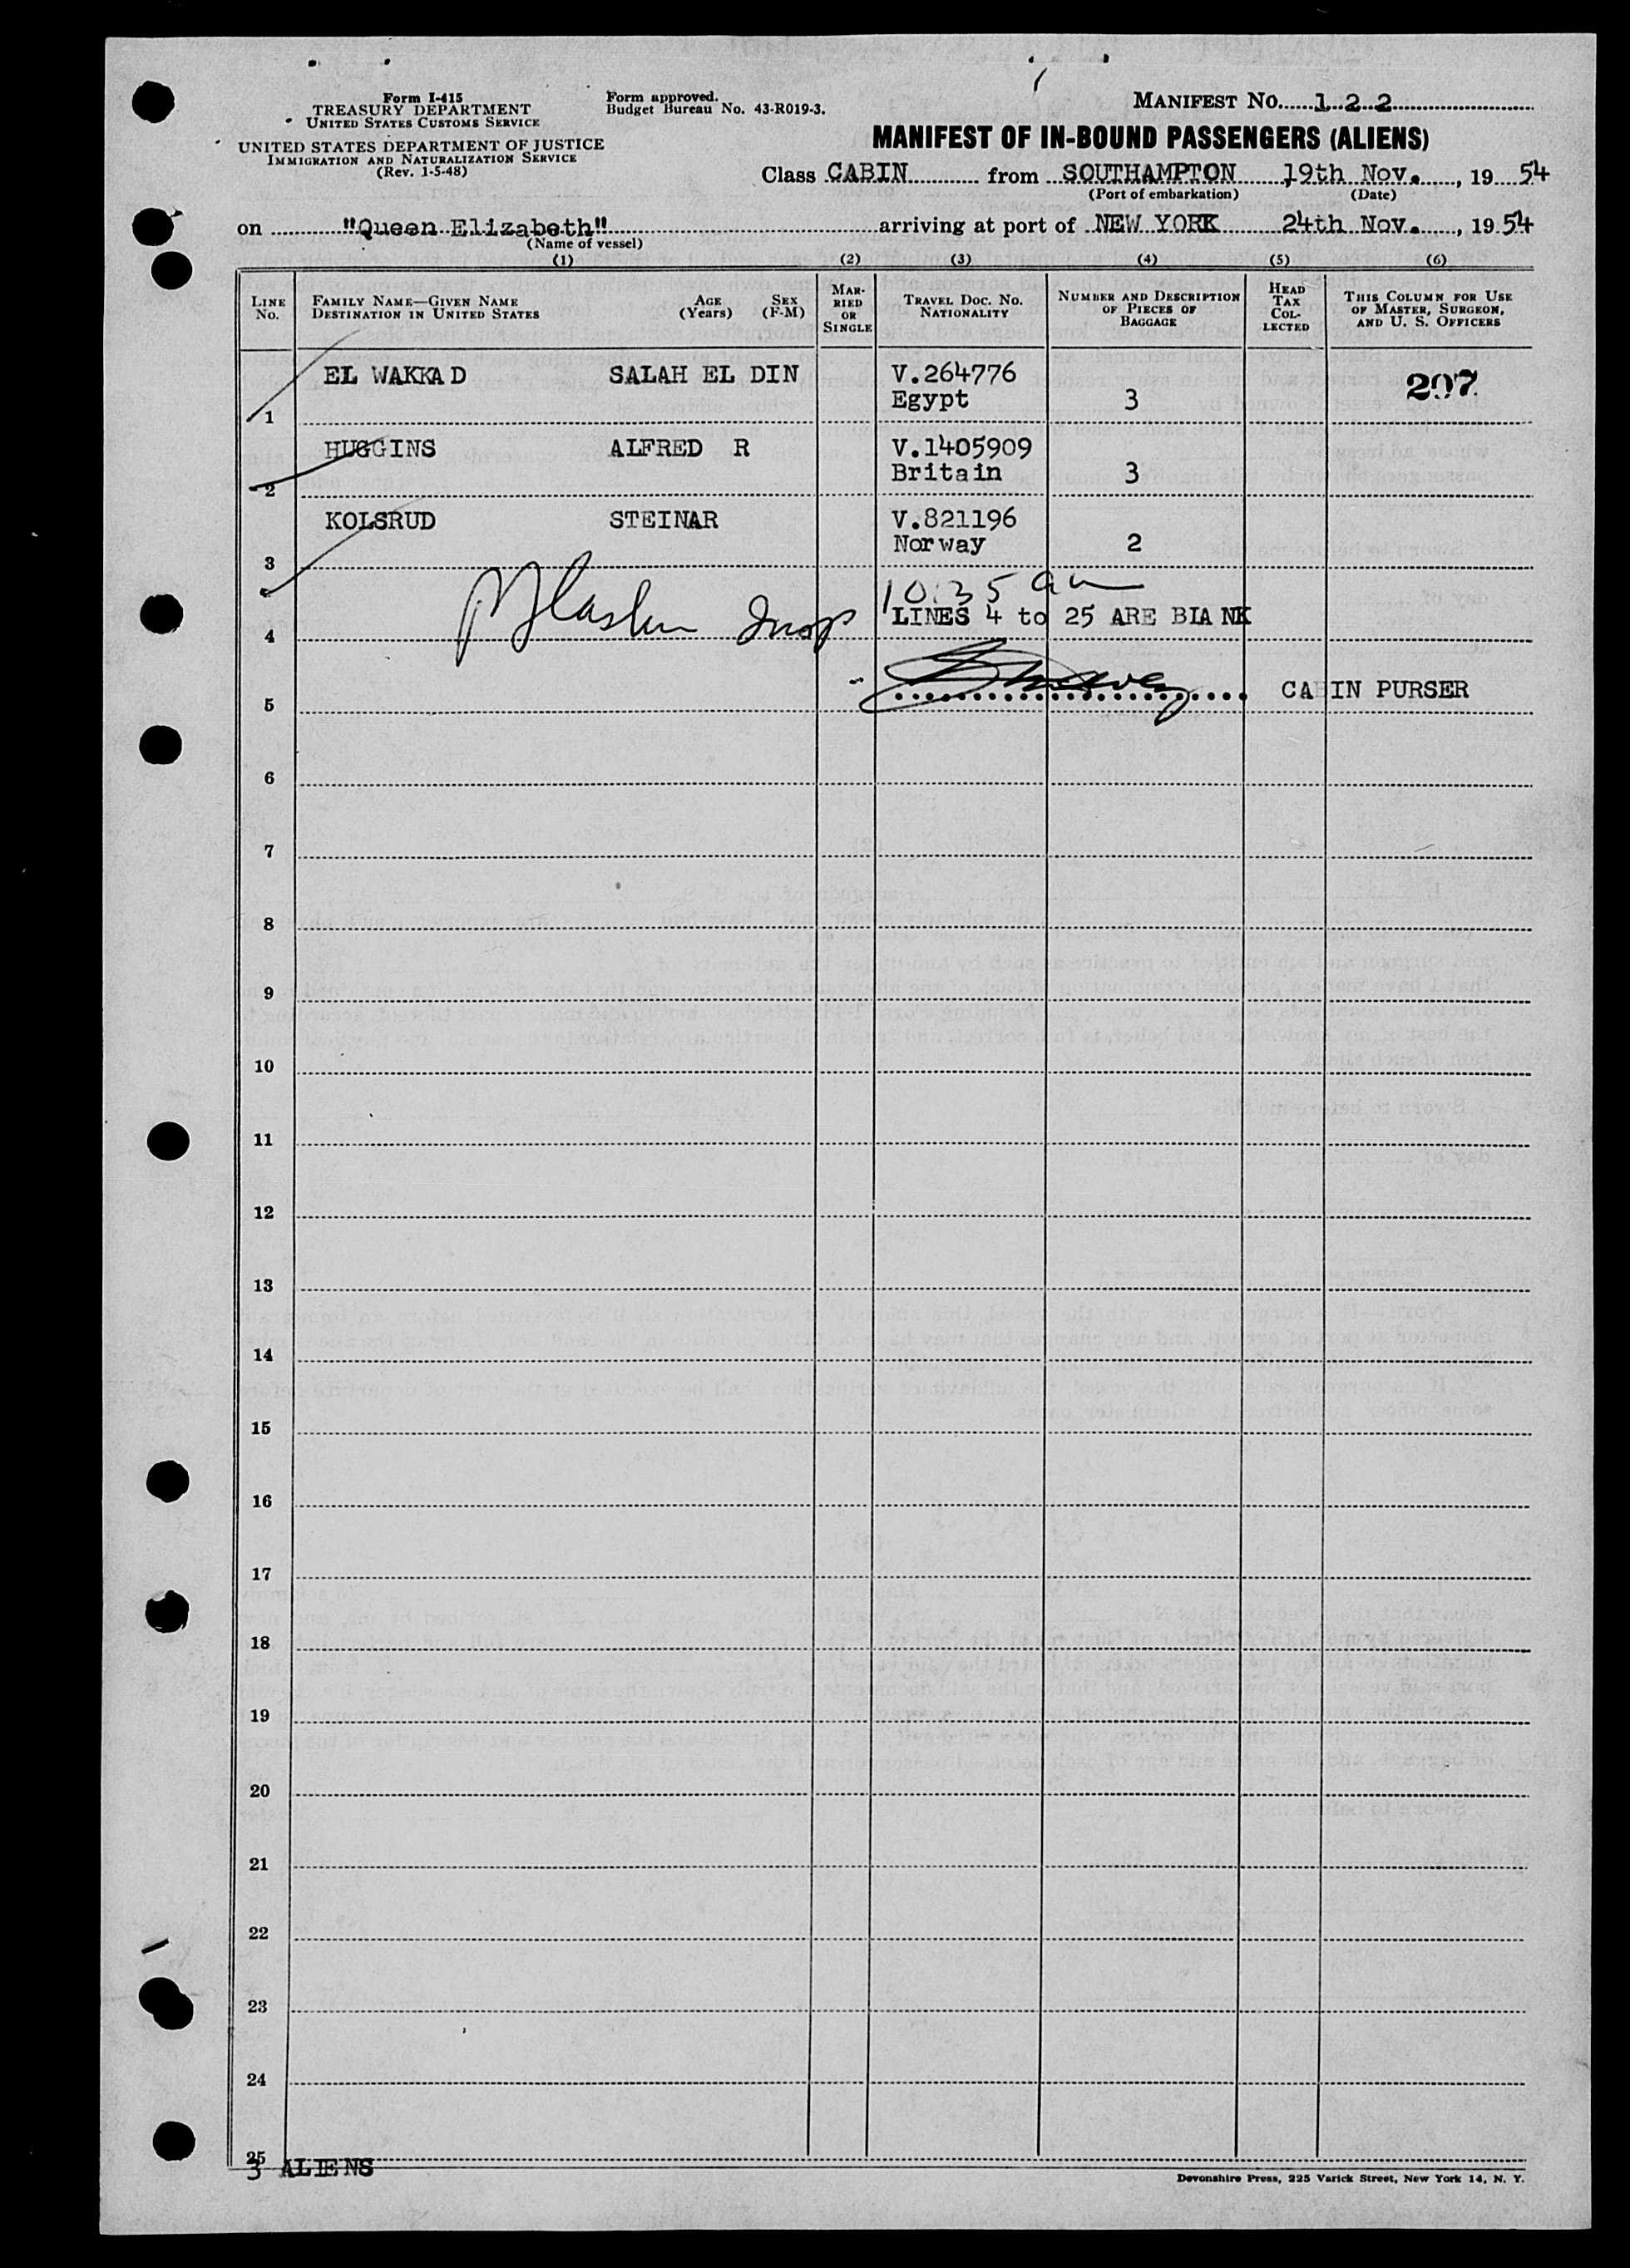 Form I-415
TREASURY DEPARTMENT
UNITED STATES CUSTOMS SERVICE
UNITED STATES DEPARTMENT OF JUSTICE
IMMIGRATION AND NATURALIZATION SERVICE
(Rev. 1-5-48)
Form approved.
Budget Bureau No. 43-R019-3.
MANIFEST NO. 122
MANIFEST OF IN-BOUND PASSENGERS (ALIENS)
Class CABIN from SOUTHAMPTON 19th Nov., 19 54
(Port of embarkation) (Date)
on "Queen Elizabeth" arriving at port of NEW YORK 24th Nov., 19 54
(Name of vessel)
(1) (2) (3) (4) (5) (6)
LINE No. FAMILY NAME—GIVEN NAME DESTINATION IN UNITED STATES AGE (Years) SEX (F-M) MARRIED OR SINGLE TRAVEL DOC. NO. NATIONALITY NUMBER AND DESCRIPTION OF PIECES OF BAGGAGE HEAD TAX COLLECTED THIS COLUMN FOR USE OF MASTER, SURGEON, AND U. S. OFFICERS
EL WAKKAD SALAH EL DIN V.264776 207
1 Egypt 3
HUGGINS ALFRED R V.1405909
2 Britain 3
KOLSRUD STEINAR V.821196
3 Norway 2
10:35 am
4 LINES 4 to 25 ARE BLANK
5 CABIN PURSER
6
7
8
9
10
11
12
13
14
15
16
17
18
19
20
21
22
23
24
25
3 ALIENS
Devonshire Press, 225 Varick Street, New York 14, N. Y.